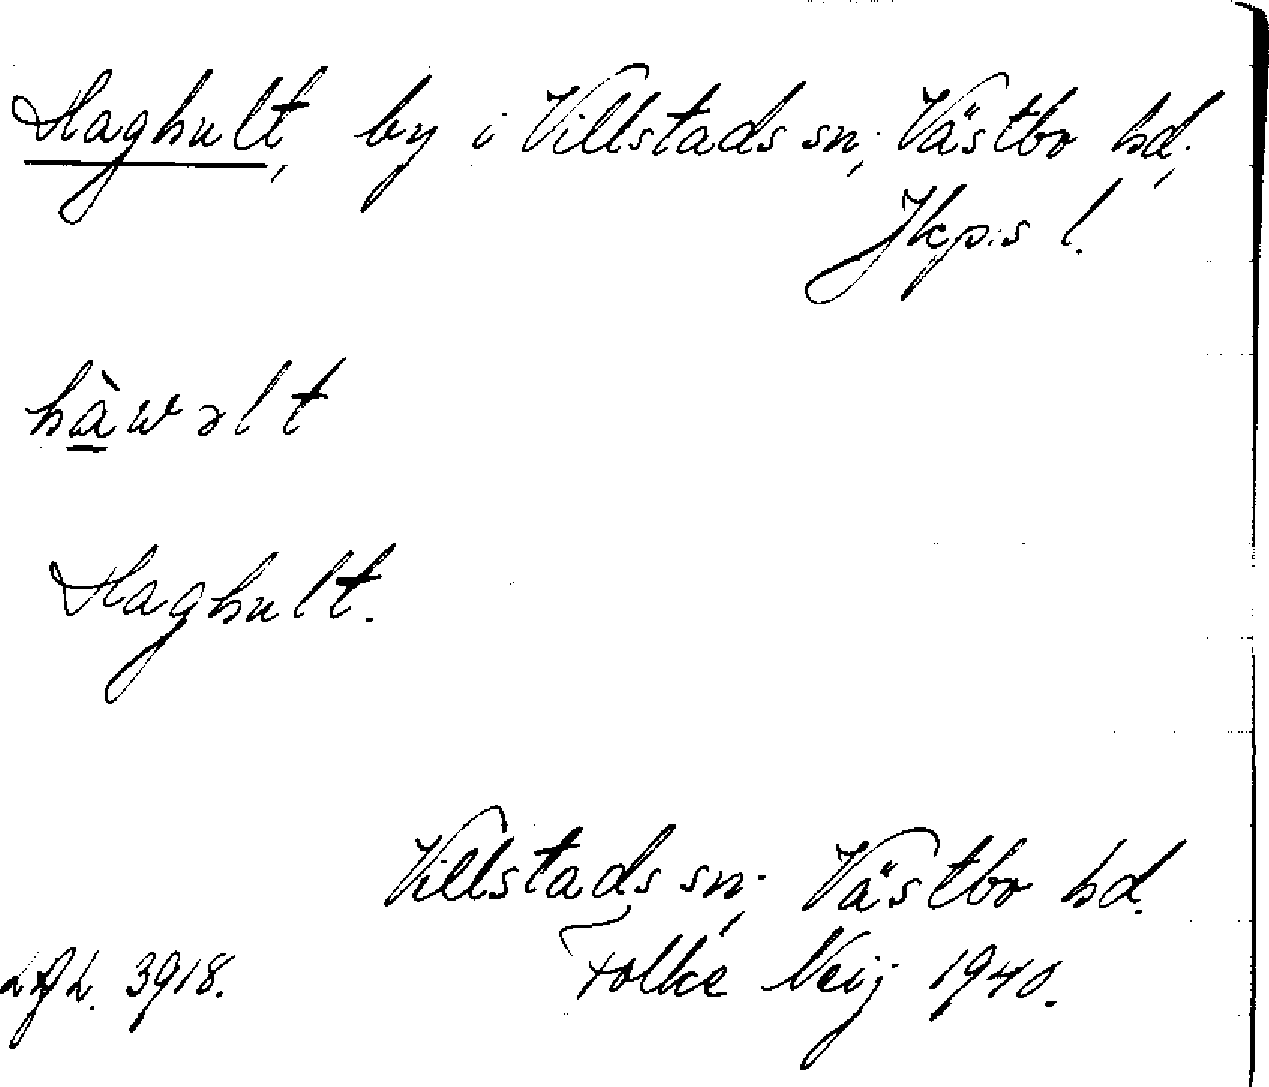 Haghult, by i Villstads sn., Västbo hd.,
Jkp:s l.
hàwəlt
Haghult.
Villstads sn., Västbo hd.
Folke Neij 1940.
3918.